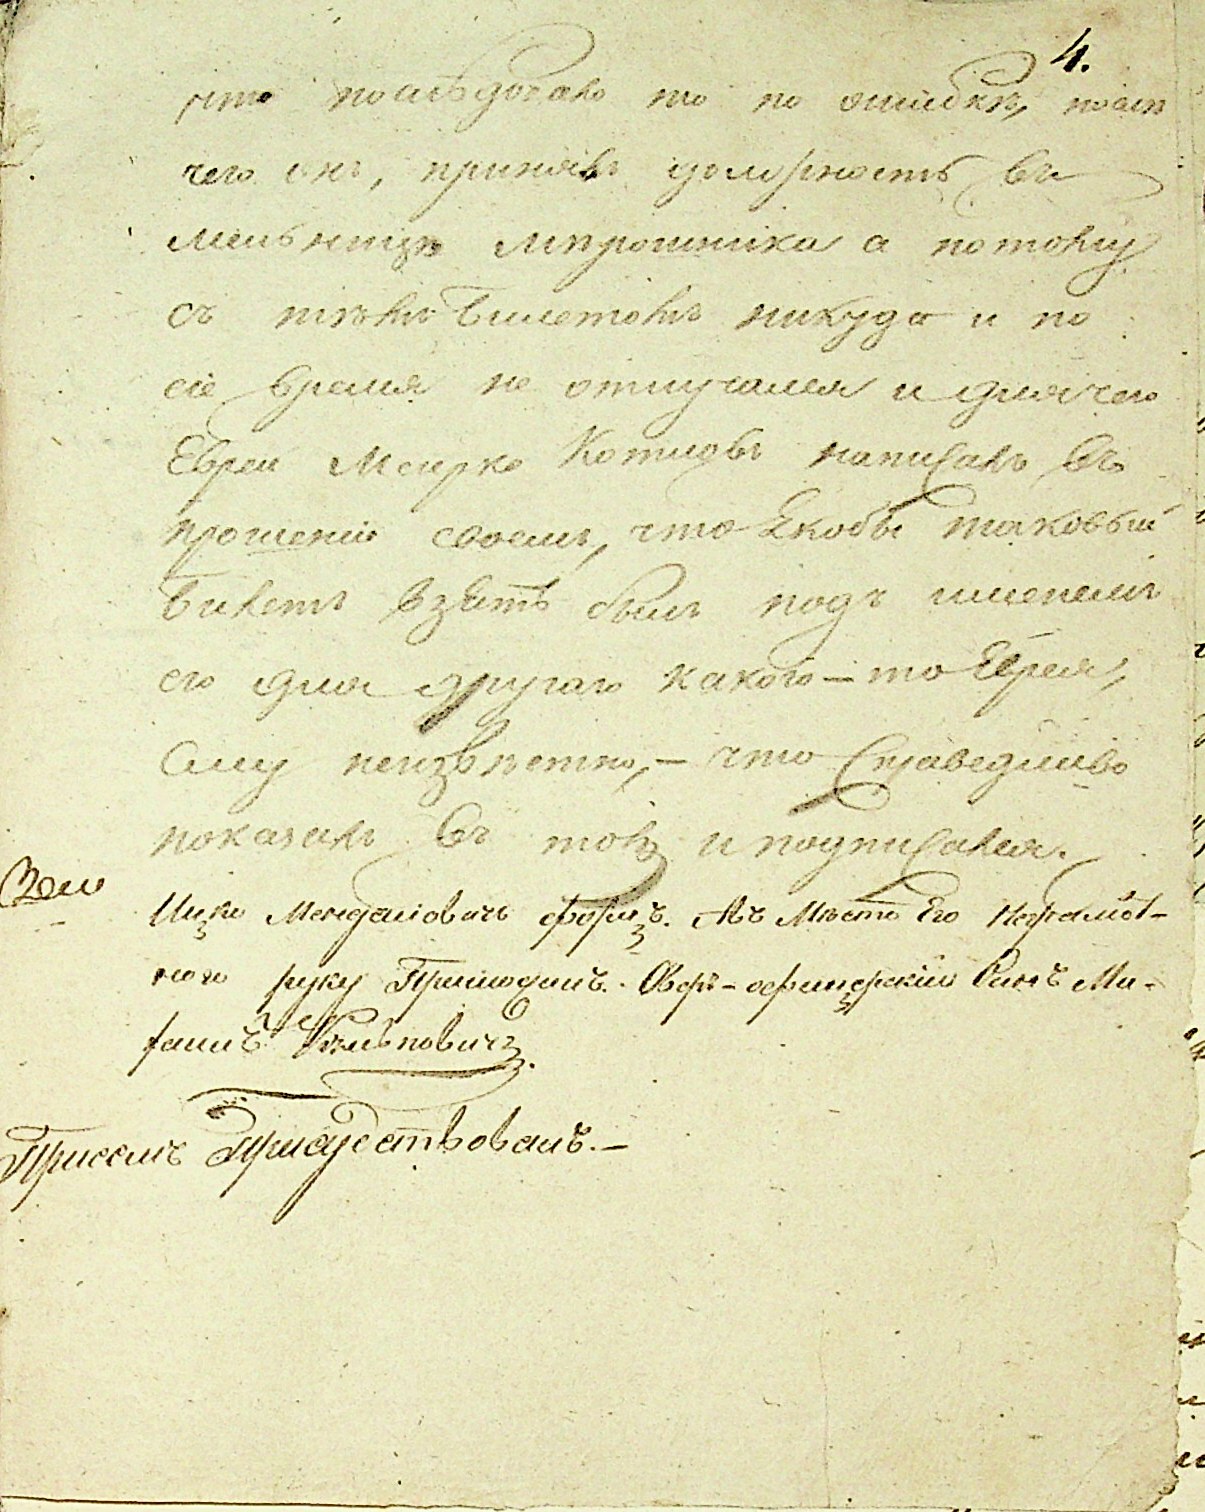 4.
что последовало то по ошибкѣ, послѣ
чего онъ, принявъ должность въ
мельницѣ мирошника а потому
съ тѣмъ билетомъ никуда и по
сіе время не отлучался и для чего
Еврей Меирко написалъ въ
прошеніи своемъ, что Якобы таковый
билетъ взятъ былъ подъ именемъ
его для другаго какого-то Еврея,
Ему неизвѣстно,- что Справедливо
показалъ въ томъ и подписался.
Ицко Менделовичъ. А въ Мѣсто Его Неграмот-
ного руку Приложилъ. Оберъ-офицерскій Сынъ Ми-
хаилъ
При семъ Присудствовалъ.-